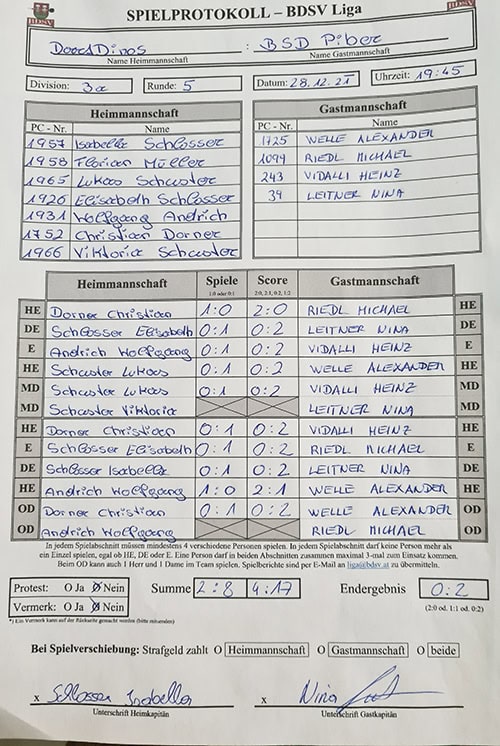 SPIELPROTOKOLL – BDSV Liga
DoordDinos : BSD Piber
Name Heimmannschaft Name Gastmannschaft
Division: 3a Runde: 5 Datum: 28.12.21 Uhrzeit: 19:45
Heimmannschaft Gastmannschaft
PC - Nr. Name PC - Nr. Name
1957 Isabella Schlosser 1725 WELLE ALEXANDER
1958 Florian Müller 1094 RIEDL MICHAEL
1965 Lukas Schuster 243 VIDALLI HEINZ
1926 Elisabeth Schlosser 39 LEITNER NINA
1931 Wolfgang Andrich
1752 Christian Dorner
1966 Viktoria Schuster
Heimmannschaft Spiele Score Gastmannschaft
1:0 oder 0:1 2:0, 2:1, 0:2, 1:2
HE Dorner Christian 1:0 2:0 RIEDL MICHAEL HE
DE Schlosser Elisabeth 0:1 0:2 LEITNER NINA DE
E Andrich Wolfgang 0:1 0:2 VIDALLI HEINZ E
HE Schuster Lukas 0:1 0:2 WELLE ALEXANDER HE
MD Schuster Lukas 0:1 0:2 VIDALLI HEINZ MD
MD Schuster Viktoria LEITNER NINA MD
HE Dorner Christian 0:1 0:2 VIDALLI HEINZ HE
E Schlosser Elisabeth 0:1 0:2 RIEDL MICHAEL E
DE Schlosser Isabella 0:1 0:2 LEITNER NINA DE
HE Andrich Wolfgang 1:0 2:1 WELLE ALEXANDER HE
OD Dorner Christian 0:1 0:2 WELLE ALEXANDER OD
OD Andrich Wolfgang RIEDL MICHAEL OD
In jedem Spielabschnitt müssen mindestens 4 verschiedene Personen spielen. In jedem Spielabschnitt darf keine Person mehr als
ein Einzel spielen, egal ob HE, DE oder E. Eine Person darf in beiden Abschnitten zusammen maximal 3-mal zum Einsatz kommen.
Beim OD kann auch 1 Herr und 1 Dame im Team spielen. Spielberichte sind per E-Mail an liga@bdsv.at zu übermitteln.
Protest: O Ja O Nein Summe 2:8 4:17 Endergebnis 0:2
Vermerk: O Ja O Nein (2:0 od. 1:1 od. 0:2)
*) Ein Vermerk kann auf der Rückseite gemacht werden (bitte mitsenden)
Bei Spielverschiebung: Strafgeld zahlt O Heimmannschaft O Gastmannschaft O beide
x Schlosser Isabella x Nina
Unterschrift Heimkapitän Unterschrift Gastkapitän